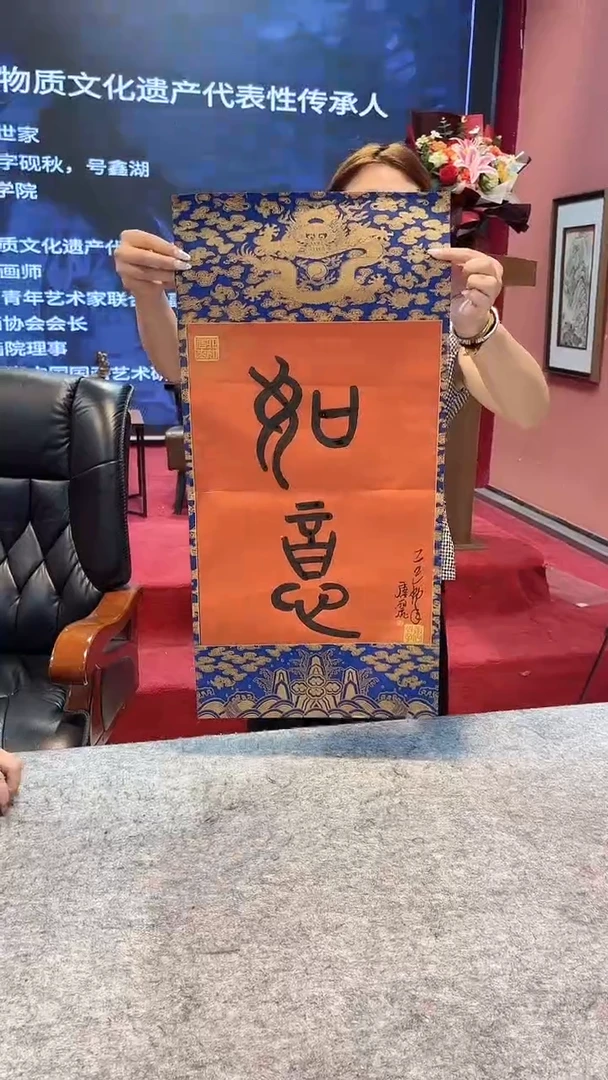 物质文化遗产代表性传承人
世家
字砚秋，号鑫湖
学院
质文化遗产代
画师
青年艺术家联合
协会会长
画院理事
国国 艺术研
如
意